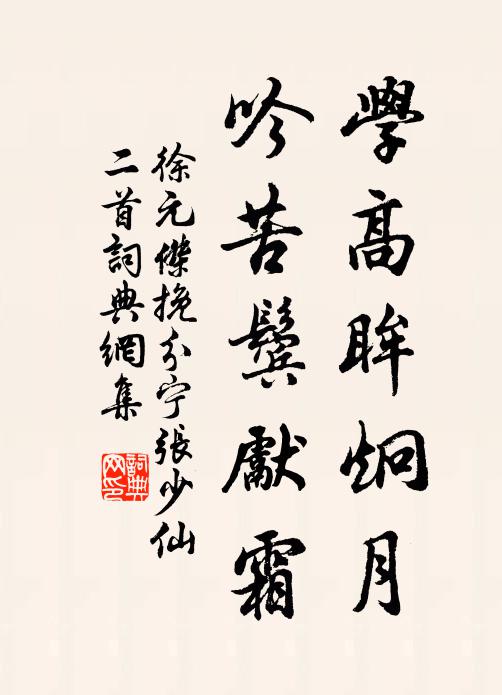 學高眸炯月
吟苦鬓獻霜
徐元傑挽分宁張少仙
二首詞典網集
詞典
网印